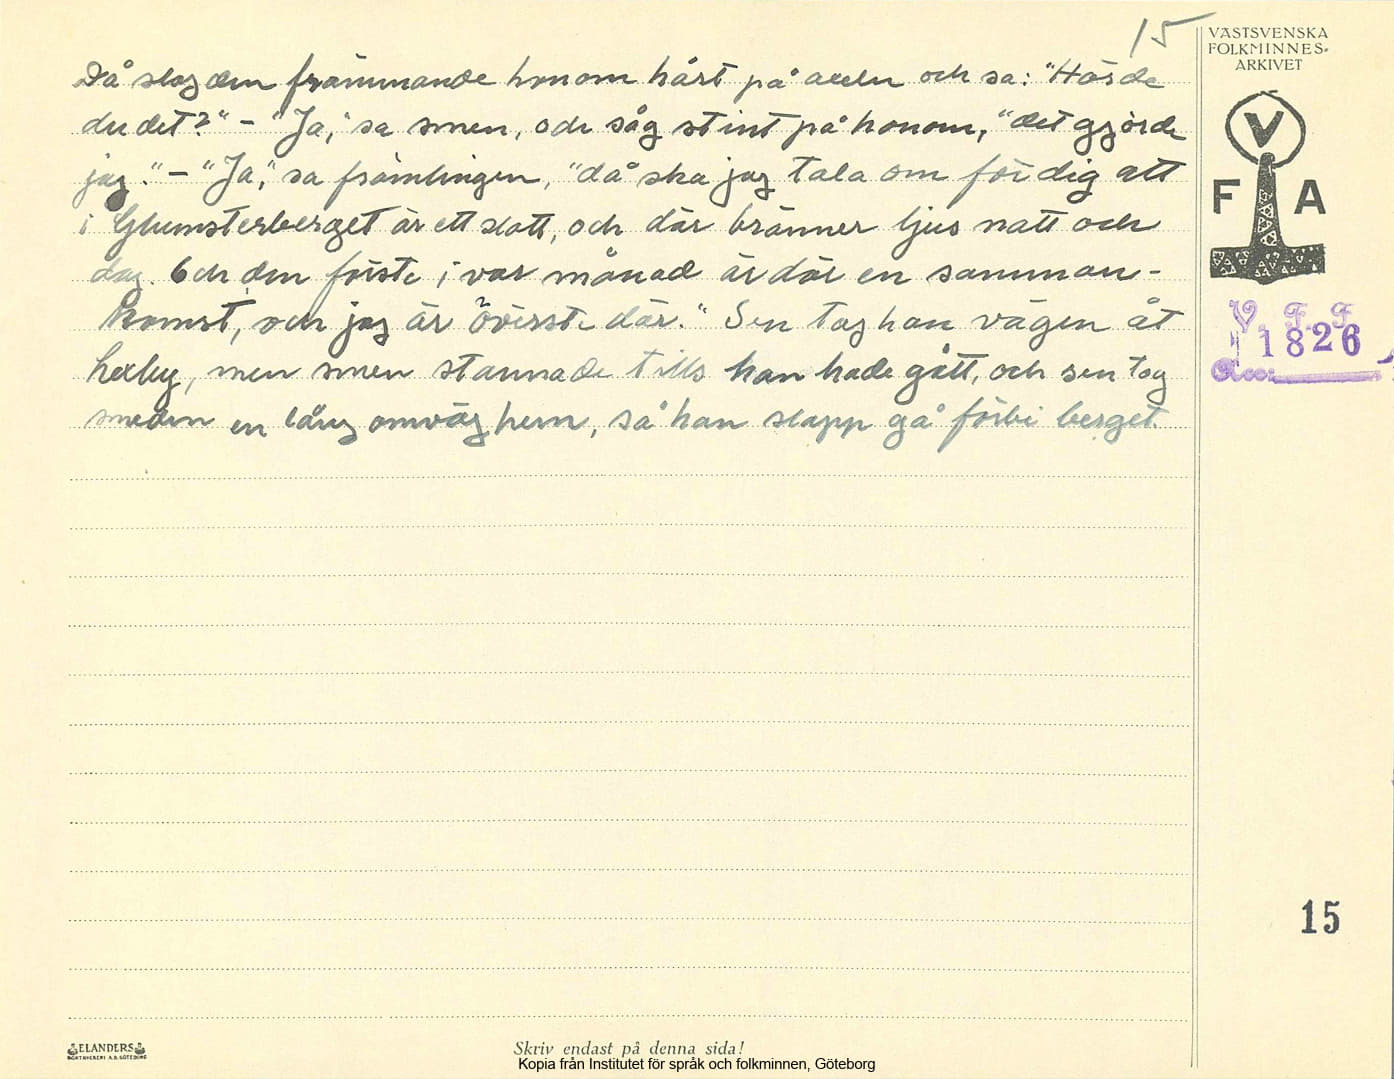 15
VÄSTSVENSKA
FOLKMINNES-
ARKIVET
Då slog den främmande honom hårt på axeln och sa: "Hörde
du det?" - "Ja," sa smen, och såg stint på honom, "det gjorde
jag." - "Ja," sa främlingen, "då ska jag tala om för dig att
i Glumsterberget är ett slott, och där bränner ljus natt och
dag. Och den förste i var månad är där en samman-
komst, och jag är överste där." Sen tog han vägen åt
hexby, men smen stannade tills han hade gått, och sen tog
smeden en lång omväg hem, så han slapp gå förbi berget.
V
F A
V. F. F.
1826
Acc:
15
ELANDERS
BOKTRYCKERI A.B. GÖTEBORG
Skriv endast på denna sida!
Kopia från Institutet för språk och folkminnen, Göteborg